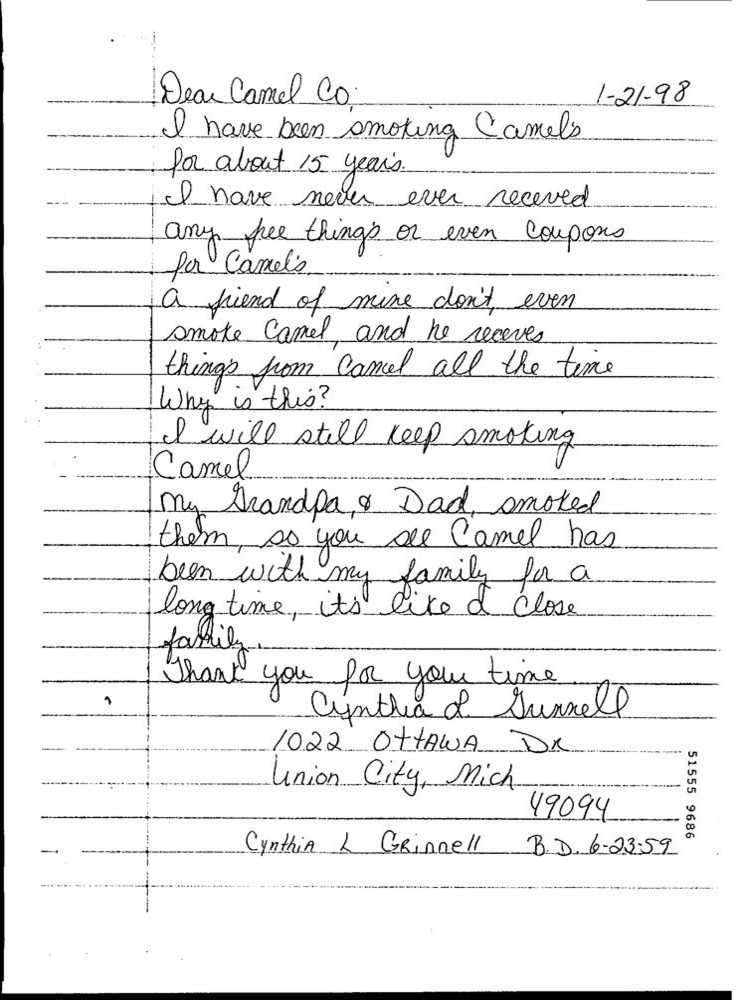 Dear Camel Co; 1-21-98
I have been smoking Camel's
for about 15 year's.
I have never ever receved
any free thing's or even Coupons
for Camel's
a friend of mine don't, even
smoke Camel, and he receves
thing's from Camel all the time
Why is this?
I will still keep smoking
Camel
my Grandpa, & Dad, smoked
them, so you see Camel has
been with my family for a
long time, it's like a close
family.
Thank you for your time
Cynthia L Grinnell
1022 OttAWA Dr
Union City, Mich
49094
Cynthia L Grinnell B.D. 6-23-59
51555 9686